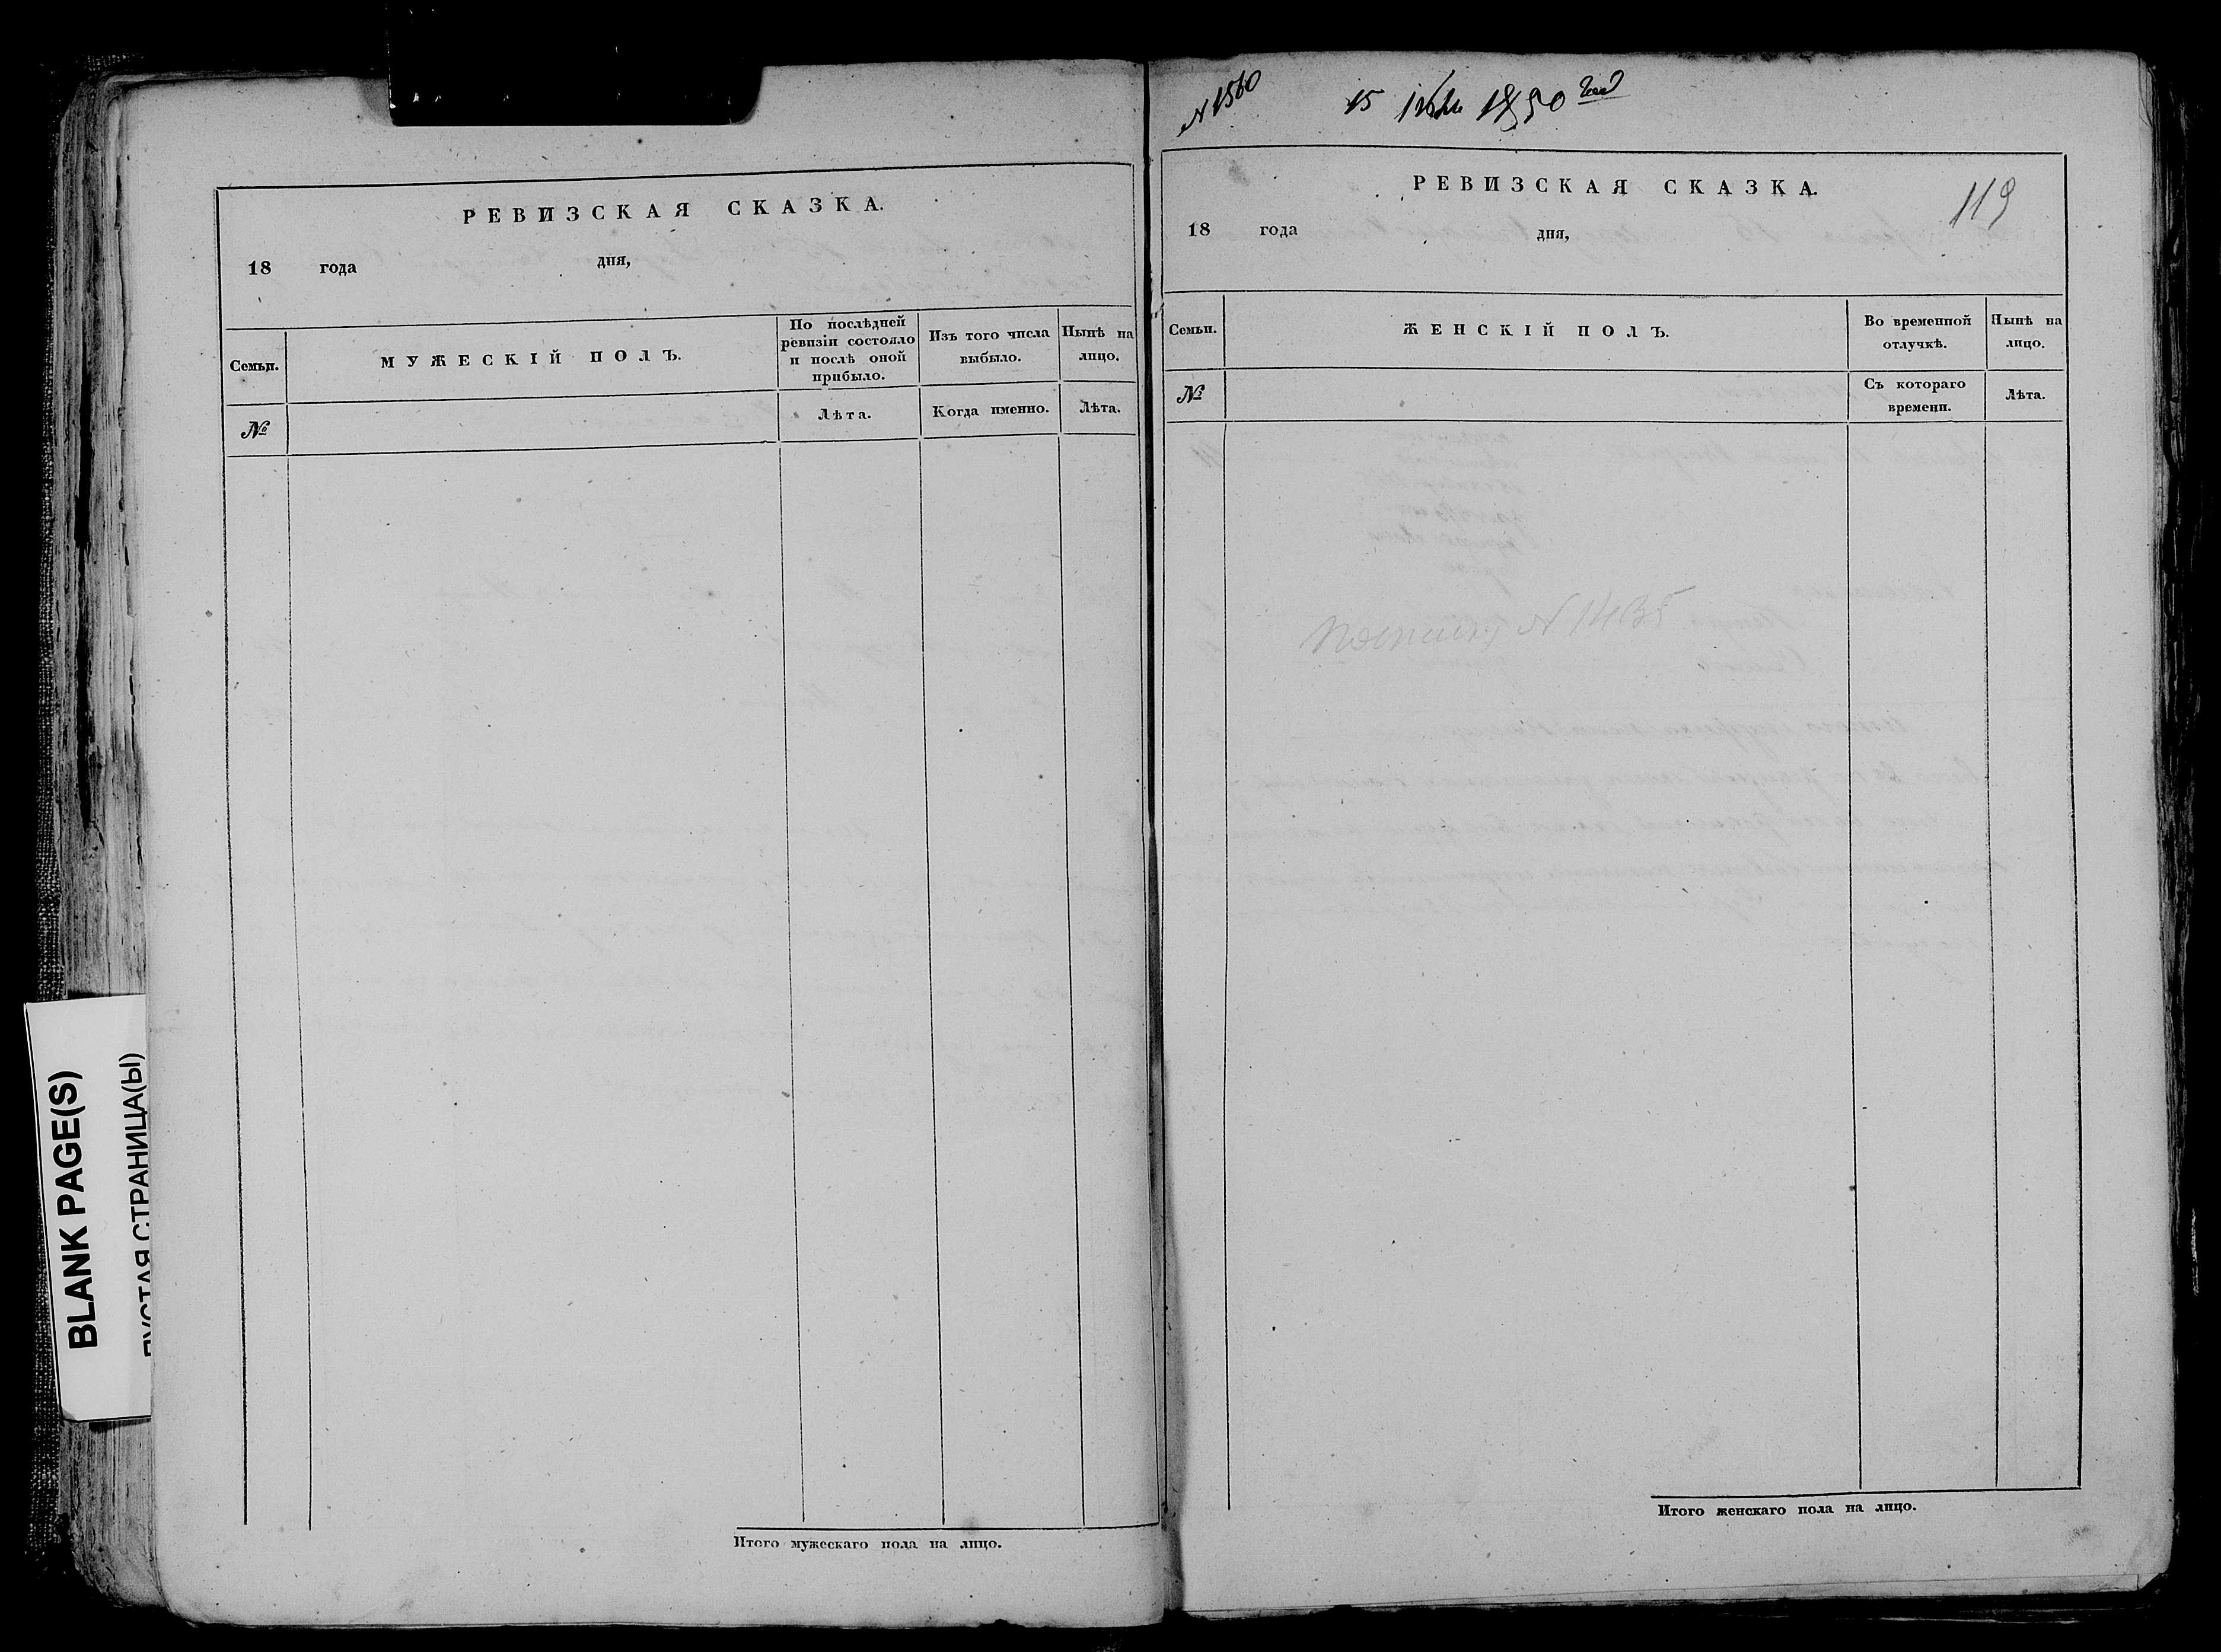 РЕВИЗСКАЯ СКАЗКА.
18 года дня,
Семьи.
МУЖЕСКІЙ ПОЛЪ.
По послѣдней
ревизіи состояло
и послѣ оной
прибыло.
Изъ того числа
выбыло.
Нынѣ на
лицо.
№
Лѣта.
Когда именно.
Лѣта.
Итого мужескаго пола на лицо.
BLANK PAGE(S)
ПУСТАЯ СТРАНИЦА(Ы)
N 1560
15 1850 года
РЕВИЗСКАЯ СКАЗКА.
119
18 года дня,
Семьи.
ЖЕНСКІЙ ПОЛЪ.
Во временной
отлучкѣ.
Нынѣ на
лицо.
№
Съ котораго
времени.
Лѣта.
N 1435
Итого женскаго пола на лицо.